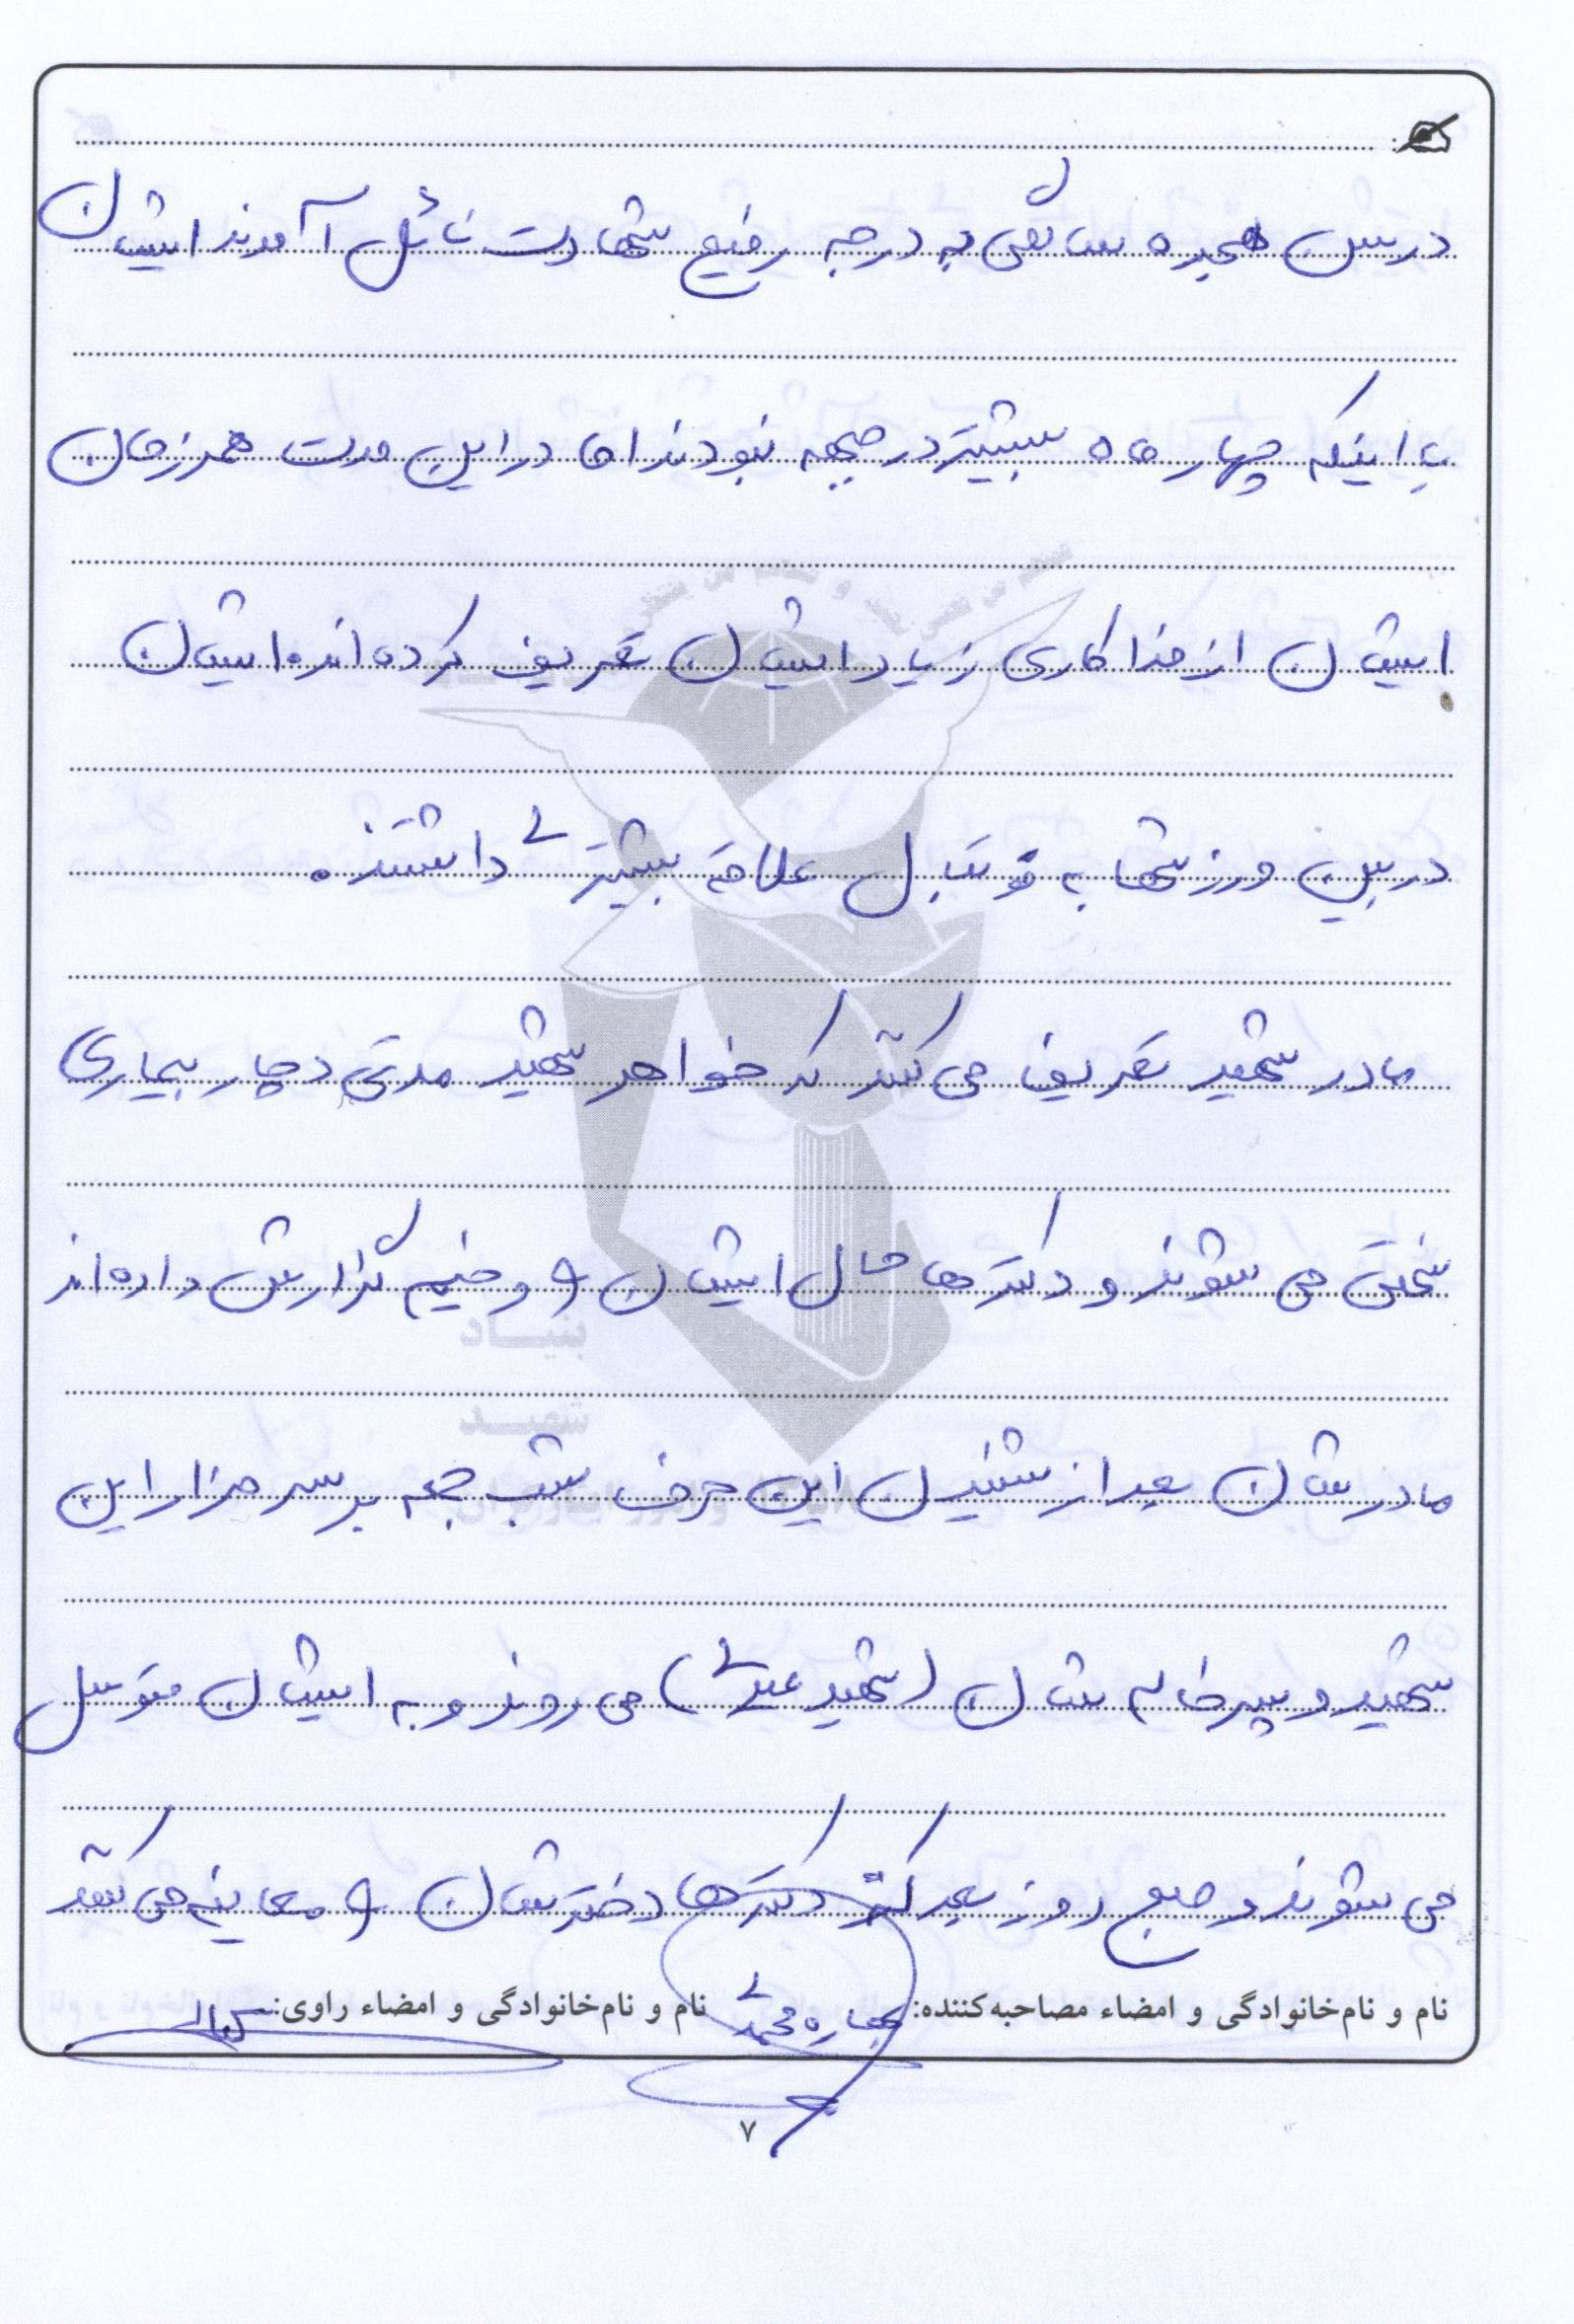 در سن هجده سالگی به درجه رفیع شهادت نائل آمدند ایشان
با اینکه چهار ماه بیشتر در جبهه نبودند اما در این مدت همرزمان
ایشان از فداکاری زیاد ایشان تعریف کرده اند. ایشان
در بین ورزشها به فوتبال علاقه بیشتری داشتند.
مادر شهید تعریف می کنند که خواهر شهید مدتی دچار بیماری
سختی می شوند و دکترها حال ایشان و وخیم گزارش داده اند
مادرشان بعد از شنیدن این حرف شب جمعه بر سر مزار این
شهید و پسر خاله شان (شهید عبدلی) می روند و به ایشان متوسل
می شوند و صبح روز بعد که دکترها دخترشان و معاینه می کنند
نام و نام‌خانوادگی و امضاء مصاحبه‌کننده: محمدی نام و نام‌خانوادگی و امضاء راوی:
۷
بنیاد
شهید